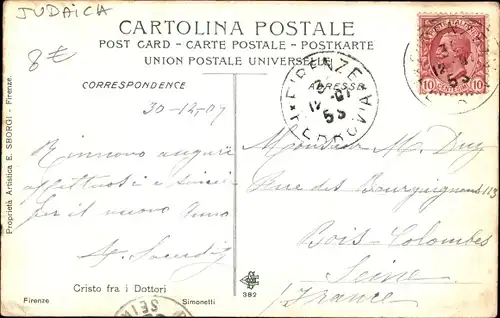 JUDAICA
8€
CARTOLINA POSTALE
POST CARD - CARTE POSTALE - POSTKARTE
UNION POSTALE UNIVERSELLE
CORRESPONDENCE
ADRESSE
30-12-07
FIRENZE
FERROVIA
12
07
53
10 CENTESIMI 10
Rinnovo auguri
affettuosi e
per il nuovo Anno
Monsieur M.
Rue des Bourguignons 113
Bois-Colombes
Seine
France
Cristo fra i Dottori
Firenze
Simonetti
382
Proprietà Artistica E. SBORGI - Firenze.
SEIN